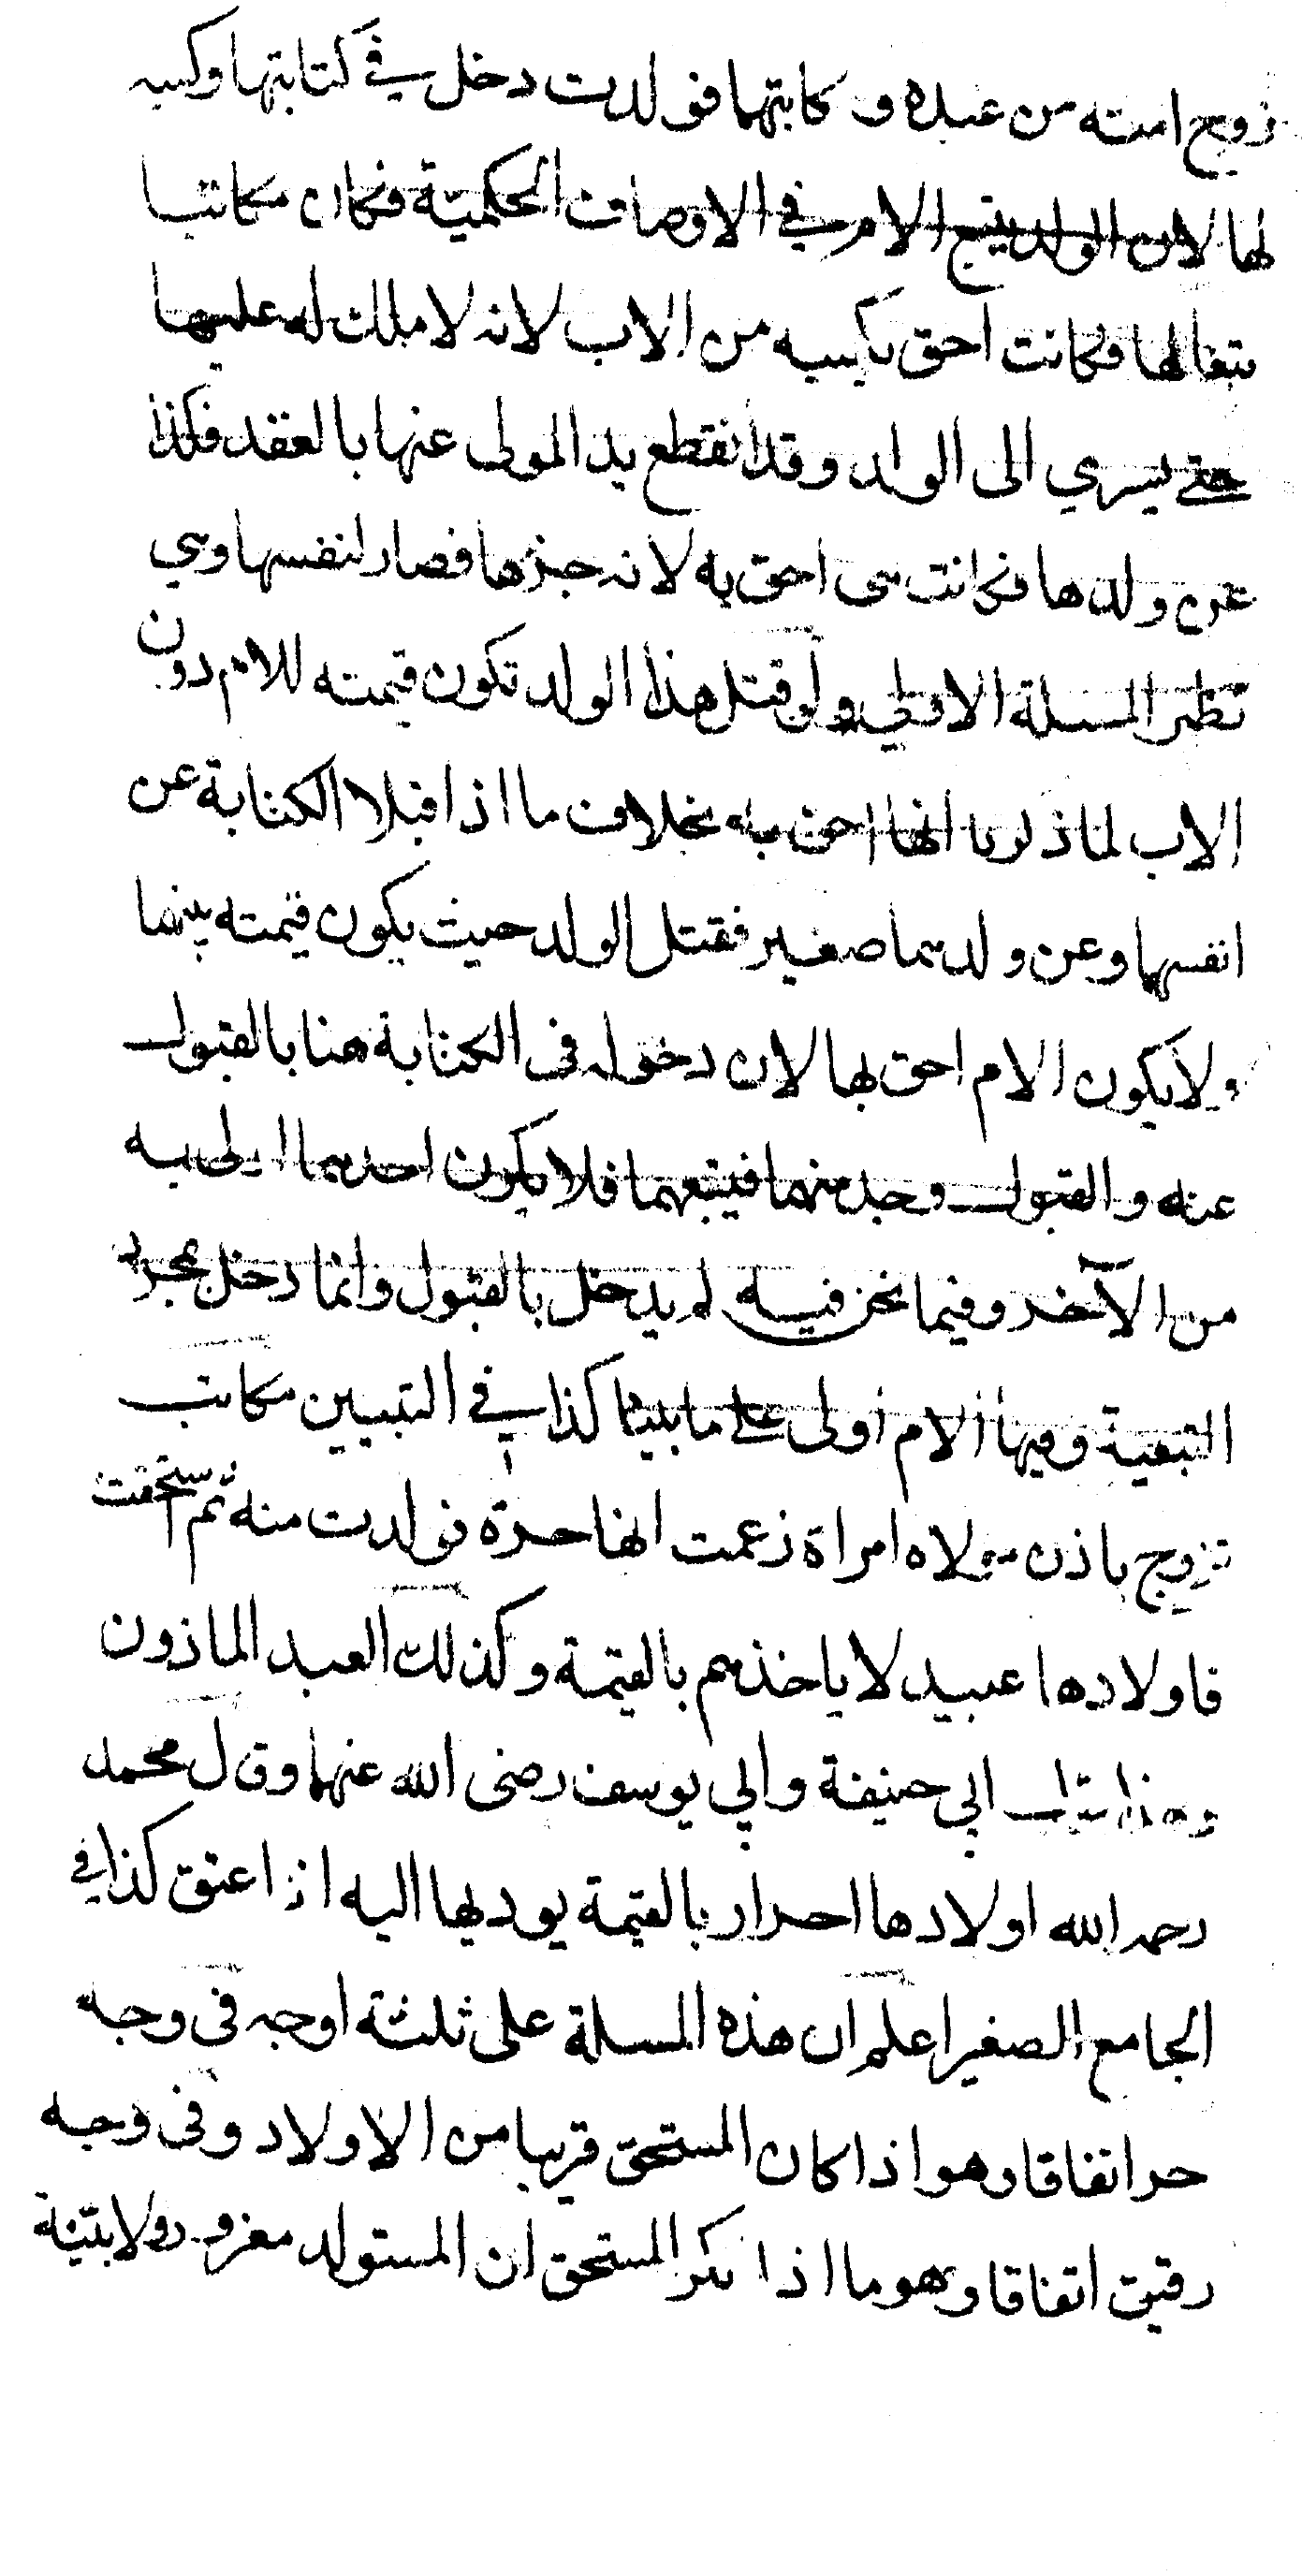 زوج امته من عبده و كاتبهما فولدت دخل في كتابتها وكسبه
لها لان الولد يتبع الام في الاوصاف الحكمية فكان مكاتبا
تبعا لها فكانت احق بكسبه من الاب لانه لا ملك له عليها
حتى يسري الى الولد وقد انقطع يد المولى عنها بالعقد فكذا
عن ولدها فكانت هي احق به لانه جزءها فصار لنفسها وهي
نظير المسلة الاولى ولو قتل هذا الولد تكون قيمته للام دون
الاب لما ذكرنا انها احق به بخلاف ما اذا قبلا الكتابة عن
انفسهما وعن ولدهما صغير فقتل الولد حيث يكون قيمته بينهما
ولا يكون الام احق بها لان دخوله فى الكتابة هنا بالقبول
عنه والقبول وجد منهما فيتبعهما فلا يكون احدهما اولى به
من الآخر وفيما نحن فيه لم يدخل بالقبول وانما دخل بمجرد
التبعية وفيها الام اولى على ما بينا كذا في التبيين مكاتب
تزوج باذن مولاه امراة زعمت انها حرة فولدت منه ثم استحقت
فاولادها عبيد لا ياخذهم بالقيمة وكذلك العبد الماذون
وهذا عند ابي حنيفة وابي يوسف رضى الله عنهما وقال محمد
رحمه الله اولادها احرار بالقيمة يوديها اليه اذا عتق كذا في
الجامع الصغير اعلم ان هذه المسلة على ثلثة اوجه فى وجه
حر اتفاقا وهو اذا كان المستحق قريبا من الاولاد وفى وجه
رقيق اتفاقا وهو ما اذا نكر المستحق ان المستولد مغرور ولا بينة